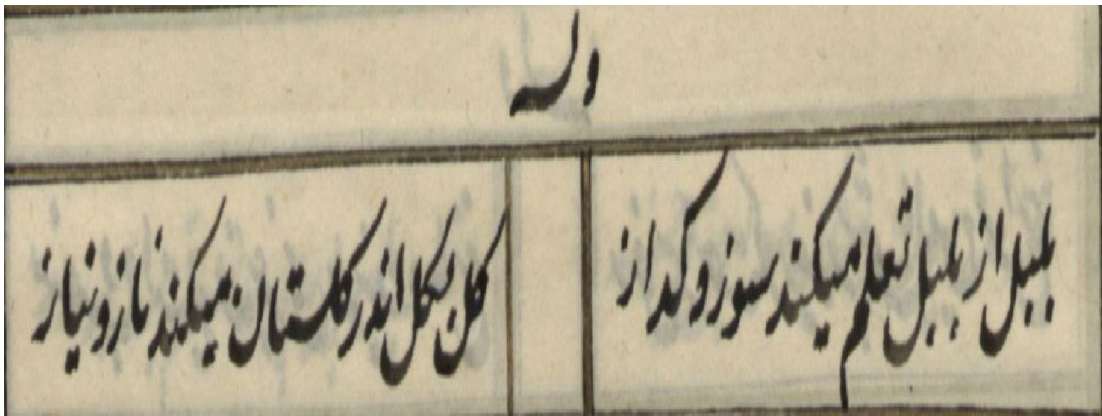 وله
بلبل از بلبل تعلم میکند سوز و کداز
کل بکل اندر کلستان میکند ناز و نیاز